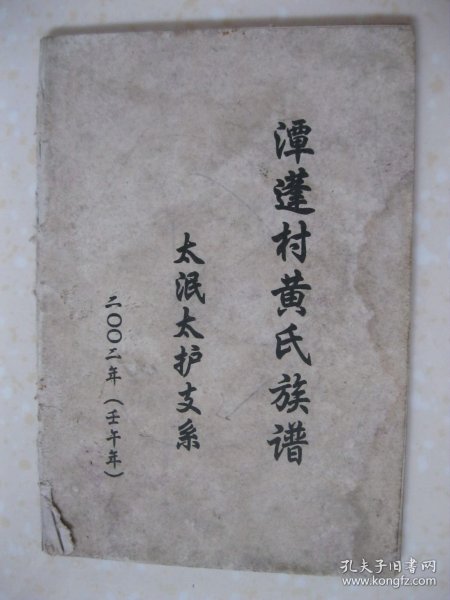 潭蓬村黄氏族谱
太泯太护支系
二〇〇二年（壬午年）
孔夫子旧书网
www.kongfz.com